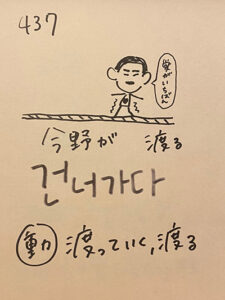 437
愛がいちばん
今野が 渡る
건너가다
動 渡っていく,渡る